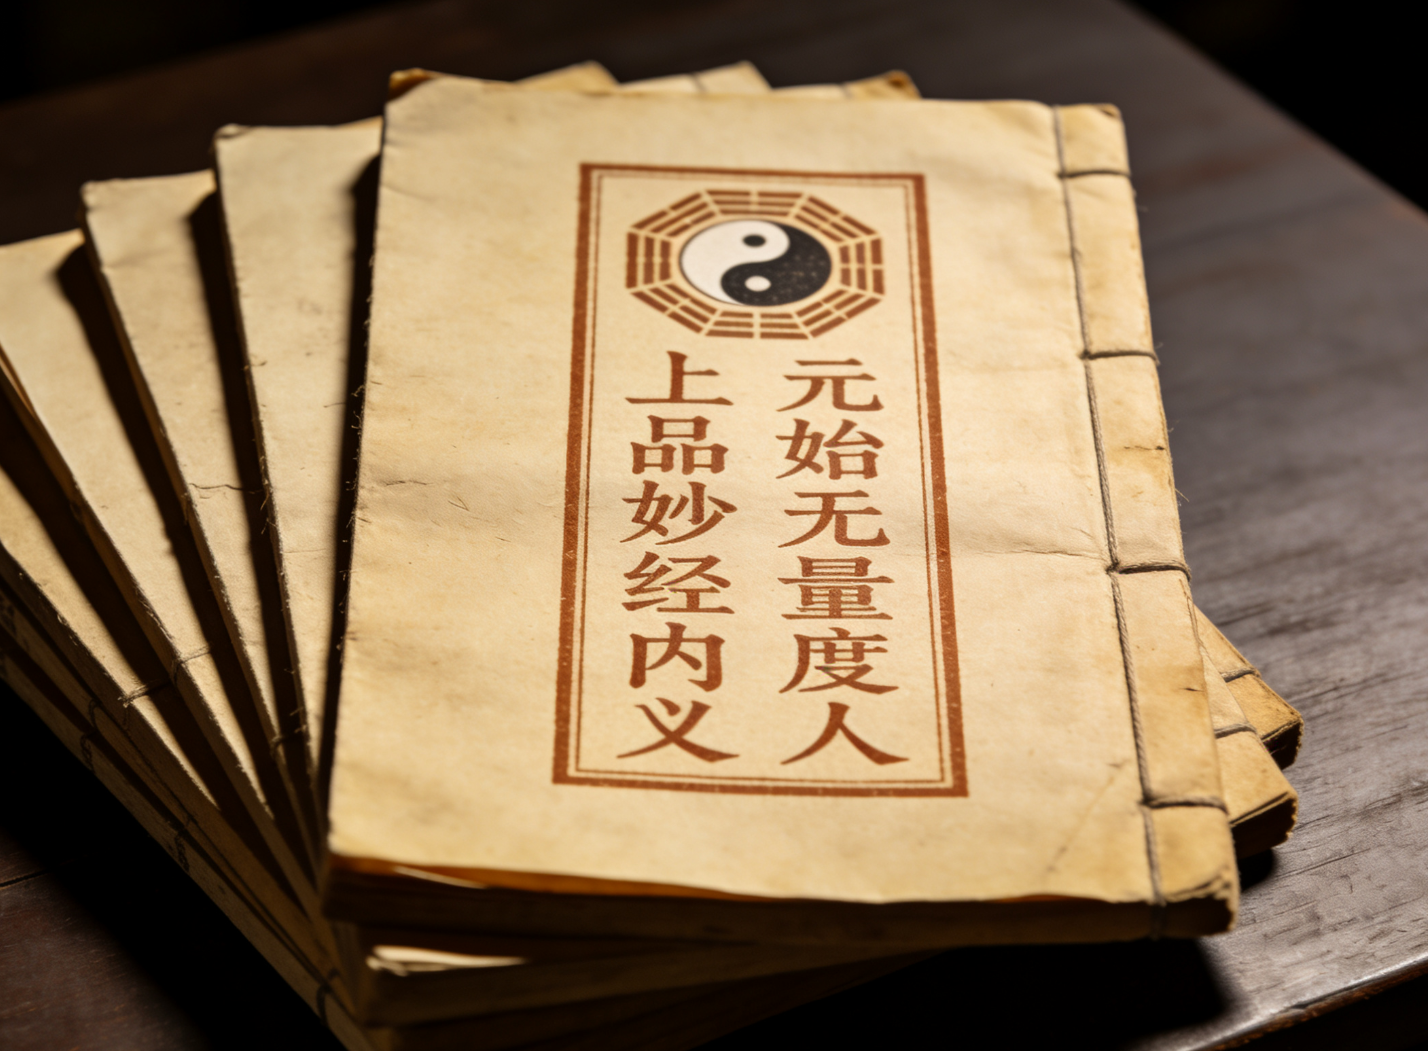 元始无量度人
上品妙经内义